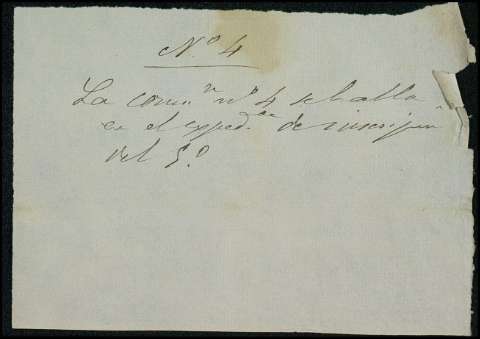 Nº 4
La comⁿ nº 4 se halla
en el exped.te de inscripción
del Sº